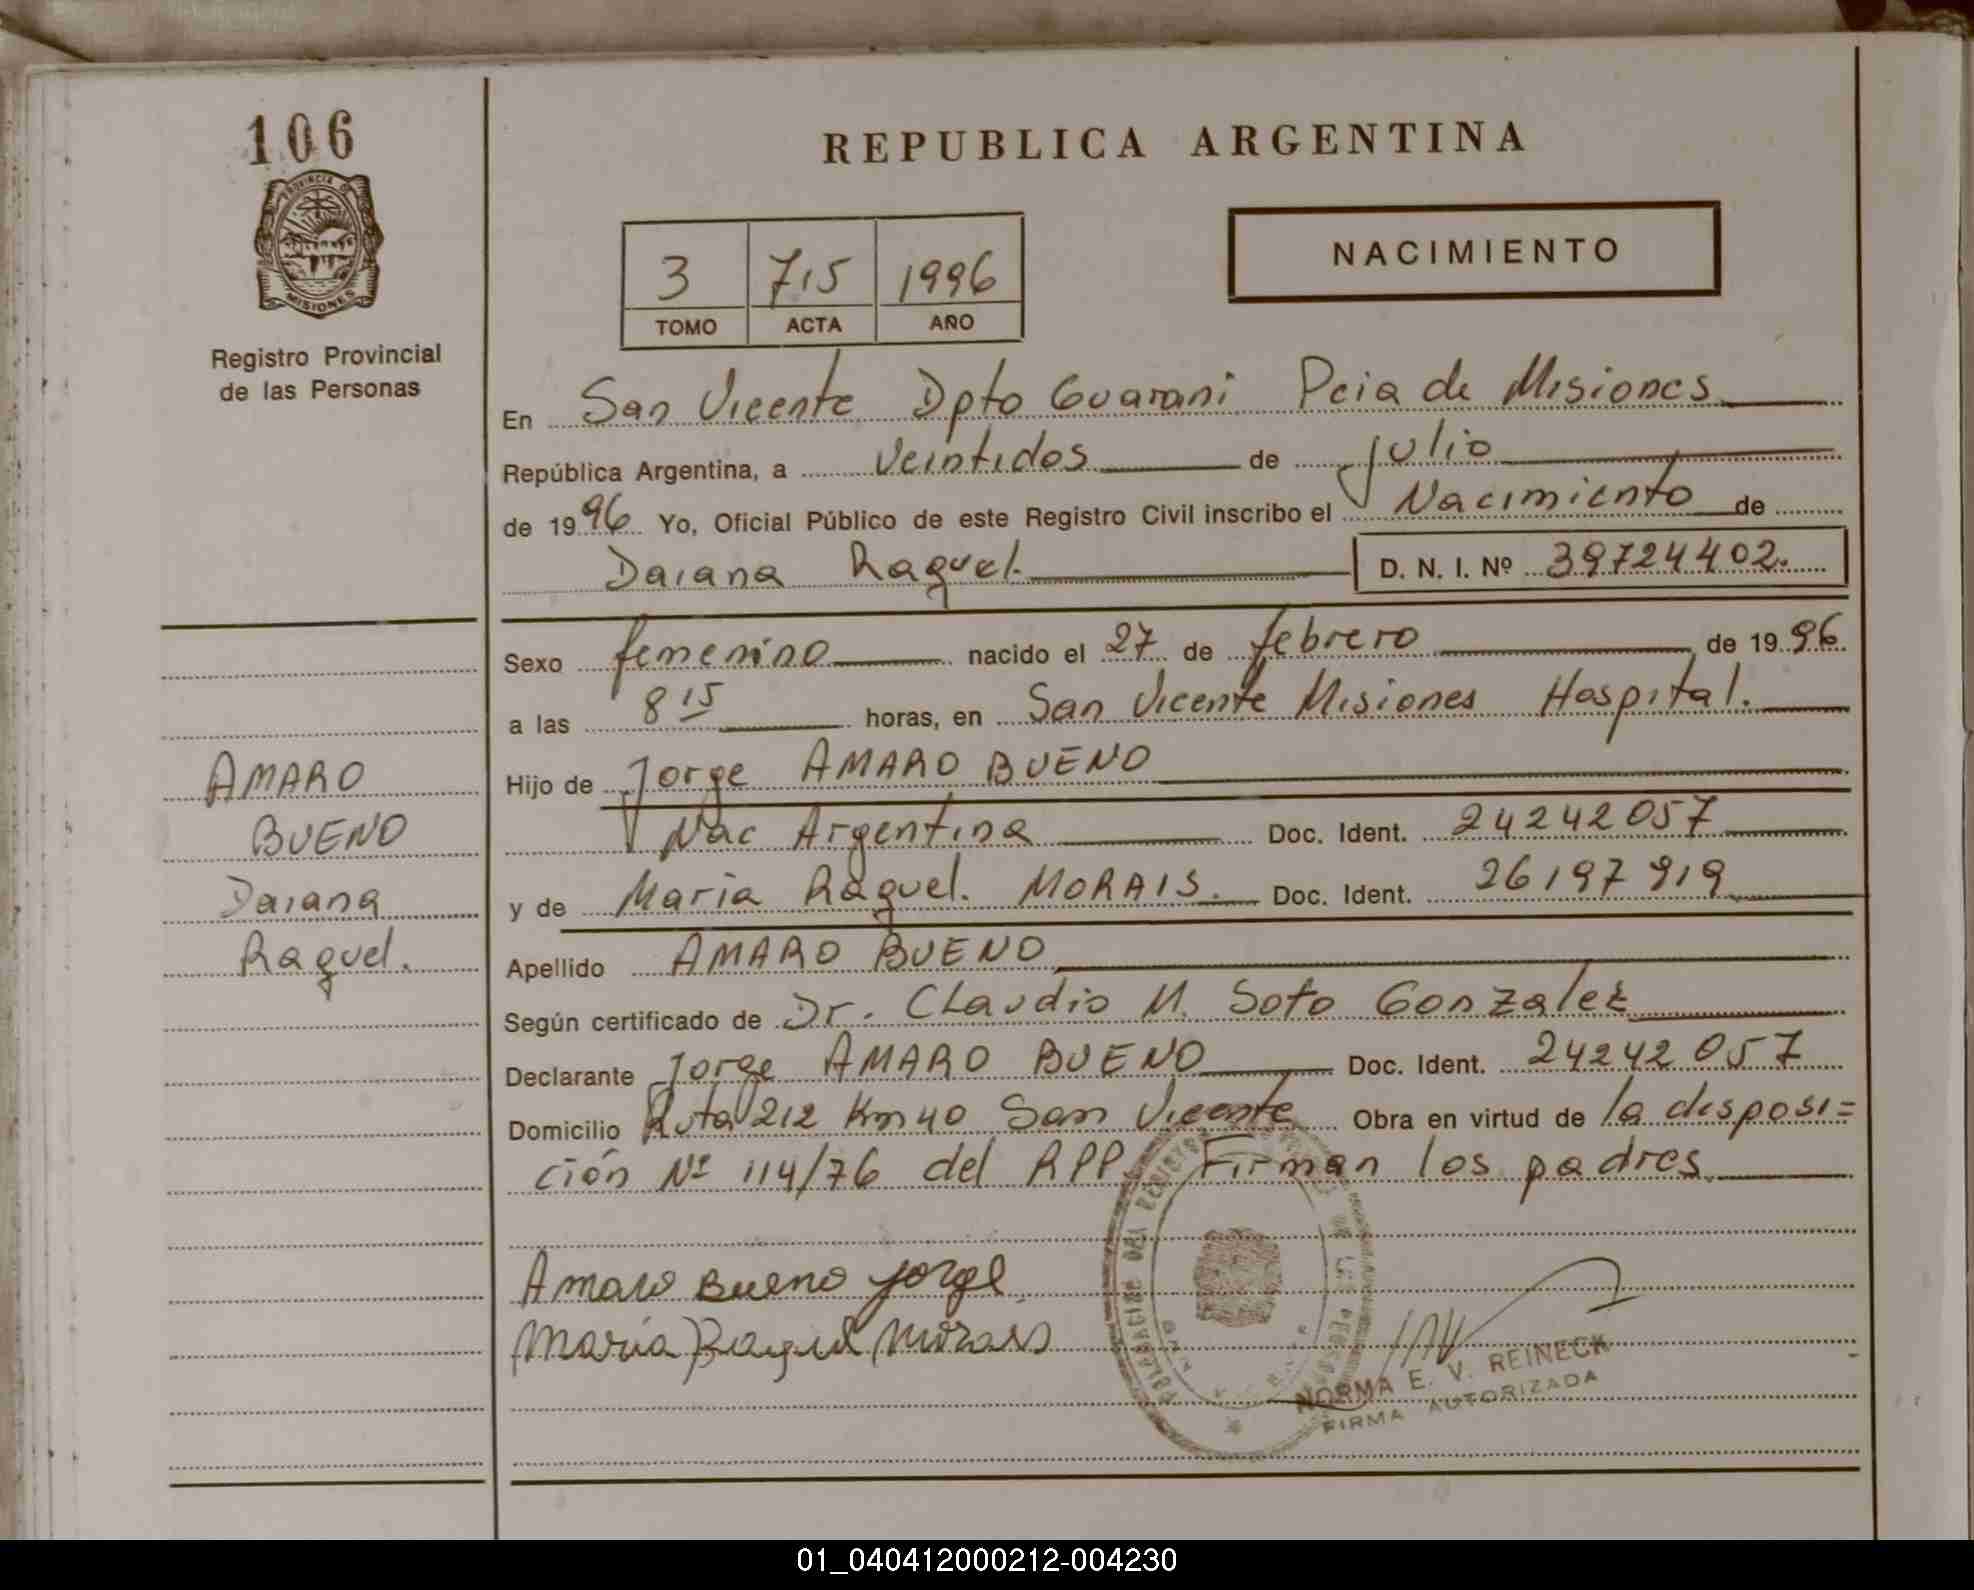 106
PROVINCIA DE
MISIONES
Registro Provincial
de las Personas
REPUBLICA ARGENTINA
3 715 1996
TOMO ACTA AÑO
NACIMIENTO
En San Vicente Dpto Guarani Pcia de Misiones
República Argentina, a veintidos de julio
de 1996 Yo, Oficial Público de este Registro Civil inscribo el Nacimiento de
Daiana Raquel. D. N. I. Nº 39724402.
Sexo femenino nacido el 27 de febrero de 1996
a las 8 15 horas, en San Vicente Misiones Hospital.
Hijo de Jorge AMARO BUENO
Nac Argentina Doc. Ident. 24242057
y de Maria Raquel. MORAIS. Doc. Ident. 26197919
Apellido AMARO BUENO
Según certificado de Dr. Claudio M. Soto Gonzalez
Declarante Jorge AMARO BUENO Doc. Ident. 24242057
Domicilio Ruta 212 Km 40 San Vicente Obra en virtud de la disposi=
ción Nº 114/76 del RPP Firman los padres
AMARO
BUENO
Daiana
Raquel.
Amaro Bueno Jorge
Maria Raquel Morais
NORMA E. V. REINECK
FIRMA AUTORIZADA
01_040412000212-004230